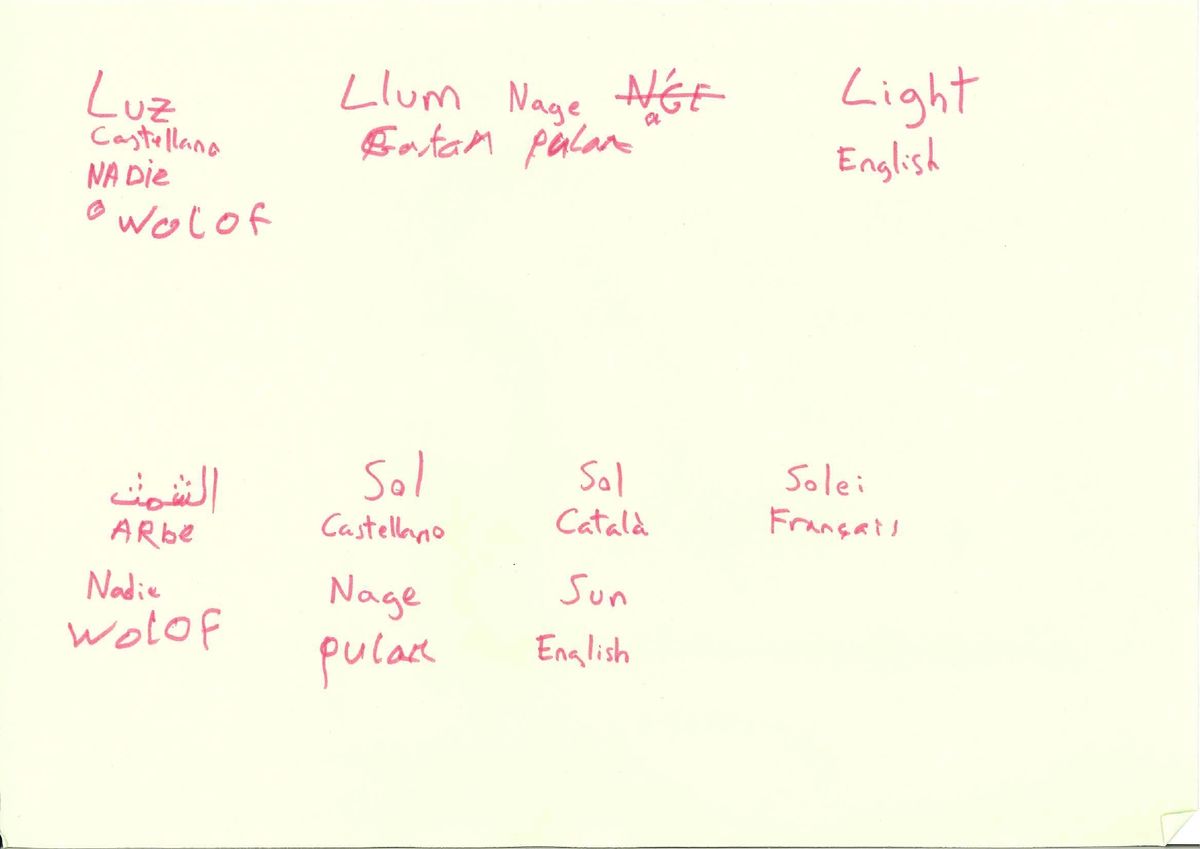 Luz
Castellano
NADie
wolof
Llum Nage
Catan pular
Light
English
الشمث
ARbe
Sol
Castellano
Sol
Català
Solei
Français
Nadie
wolof
Nage
pular
Sun
English